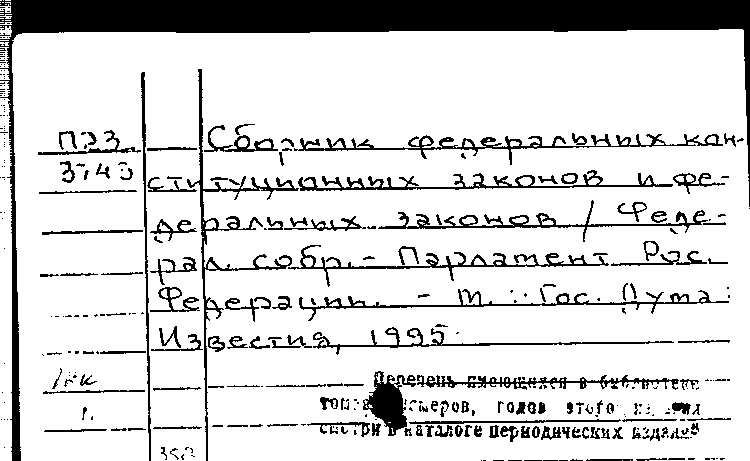 П23 Сборник федеральных кон-
3743 ституционных законов и фе-
деральных законов / Феде-
рал. собр. - Парламент Рос.
Федерации. - М. : Гос. Дума :
Известия, 1995
Перечень имеющихся в библиотеке
1. томов, номеров, годов этого издания
смотри в каталоге периодических изданий